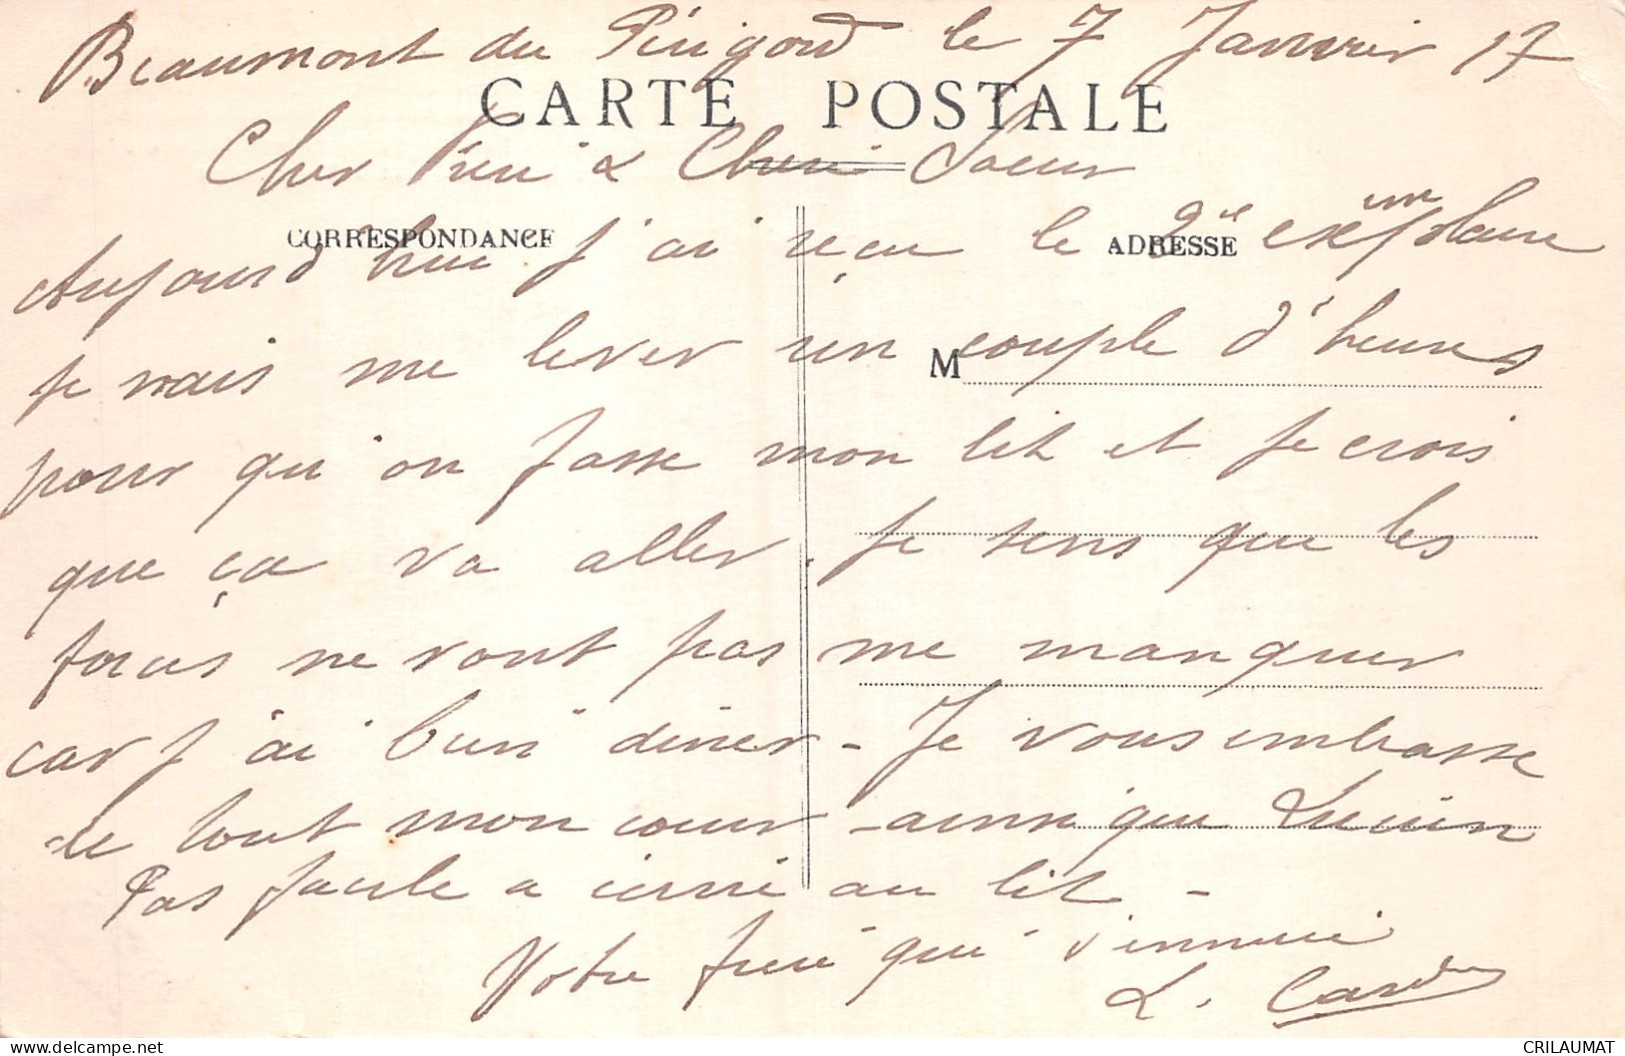 Beaumont du Périgord le 7 Janvier 17
CARTE POSTALE
Cher Frère & Chère Soeur
CORRESPONDANCE
ADRESSE
Aujourd'hui j'ai reçu le 2e exemplaire
je vais me lever un couple d'heures
M
pour qu'on fasse mon lit et je crois
que ça va aller. Je sens que les
forces ne vont pas me manquer
car j'ai bien diner - Je vous embrasse
de tout mon coeur - ainsi que Lucien
Pas facile a écrire au lit -
Votre frère qui s'ennuie
L.
CRILAUMAT